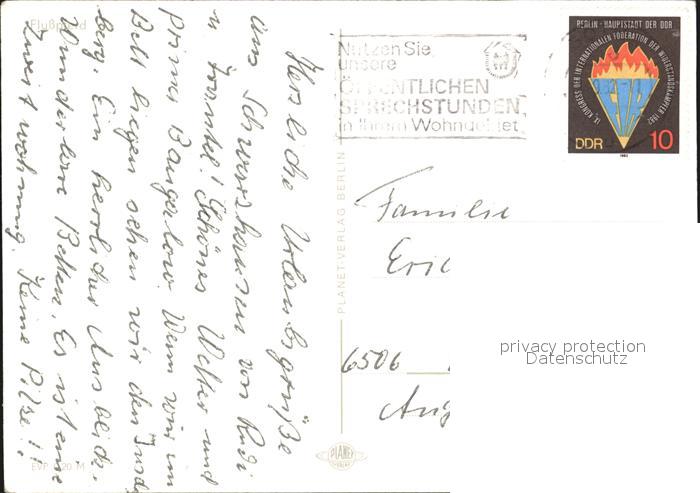 Flußpferd
Herzliche Urlaubsgrüße
aus Schwarzhausen von Rudi
u. Traudel! Schönes Wetter und
prima Bungalow. Wenn wir im
Bett liegen sehen wir den Insels-
berg. Ein herrlicher Ausblick.
Wunderbare Betten. Es ist eine
Zweitwohnung. Keine Pilze!!
EVP 0,20 M
PLANET-VERLAG BERLIN
PLANET
VERLAG
Nutzen Sie
unsere
ÖFFENTLICHEN
SPRECHSTUNDEN
in Ihrem Wohngebiet
BERLIN - HAUPTSTADT DER DDR
IX. KONGRESS DER INTERNATIONALEN FÖDERATION DER WIDERSTANDSKÄMPFER 1982
FIR
DDR 10
1982
Familie
Eric
6506
privacy protection
Datenschutz